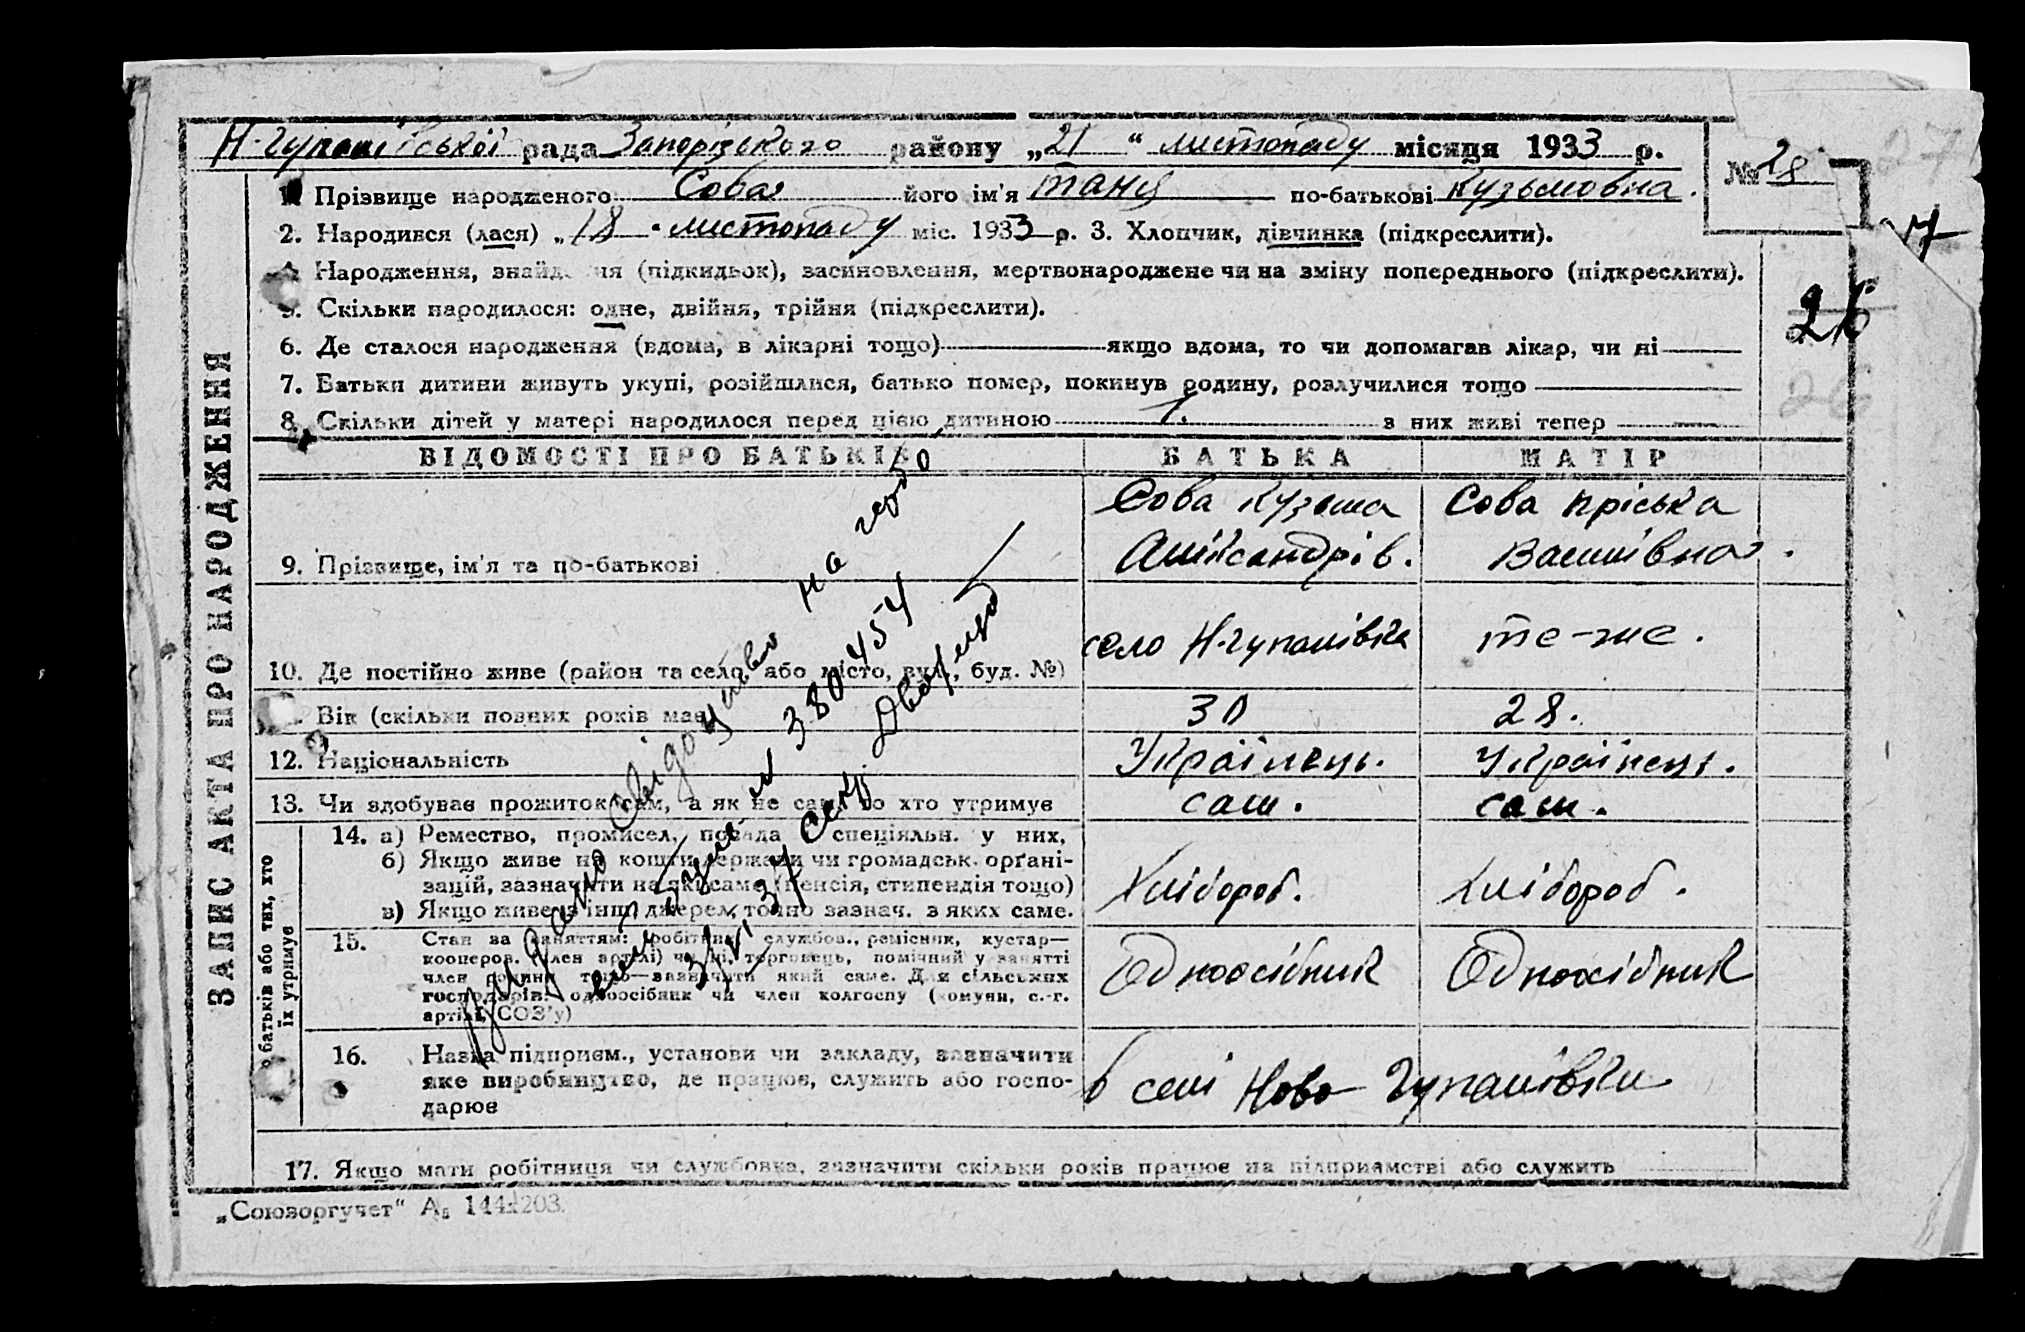 Н-Гупалівської рада Запорізького району „21“ листопаду місяця 1933 р.
№ 28
1. Прізвище народженого Сова його ім'я Таня по-батькові Кузьмовна.
2. Народився (лася) „18 листопаду міс. 1933 р. 3. Хлопчик, дівчинка (підкреслити).
Народження, знайдення (підкидьок), засиновлення, мертвонароджене чи на зміну попереднього (підкреслити).
5. Скільки народилося: одне, двійня, трійня (підкреслити).
26
6. Де сталося народження (вдома, в лікарні тощо) якщо вдома, то чи допомагав лікар, чи ні
7. Батьки дитини живуть укупі, розійшлися, батько помер, покинув родину, розлучилися тощо
26
8. Скільки дітей у матері народилося перед цією дитиною 1. з них живі тепер
ЗАПИС АКТА ПРО НАРОДЖЕННЯ
ВІДОМОСТІ ПРО БАТЬКІВ БАТЬКА МАТІР
Сова Кузьма Сова Пріська
9. Прізвище, ім'я та по-батькові Аліксандрів. Василівна.
село Н-Гупалівка те-же.
10. Де постійно живе (район та село або місто, вул., буд. №)
Вік (скільки повних років має) 30 28.
12. Національність Українець. Українець.
13. Чи здобуває прожиток сам, а як не сам, то хто утримує сам. сам.
батьків або тих, хто
їх утримує
14. а) Ремество, промисел, посада спеціяльн. у них,
б) Якщо живе на кошти держави чи громадськ. орґані-
зацій, зазначити на які саме (пенсія, стипендія тощо) Хлібороб. Хлібороб.
в) Якщо живе з інш. джерел, точно зазнач. з яких саме.
15. Стан за заняттям: робітник, службов., ремісник, кустар—
кооперов. (член артілі) чи ні, торговець, помічний у занятті
член родини тощо—зазначити який саме. Для сільських Одноосібник Одноосібник
господарів: одноосібник чи член колгоспу (комуни, с.-г.
артілі, СОЗ'у)
16. Назва підприєм., установи чи закладу, зазначити
яке виробництво, де працює, служить або госпо- в селі Ново Гупалівки
дарює
17. Якщо мати робітниця чи службовка, зазначити скільки років працює на підприємстві або служить
видано свідоцтво на
№ 380454
„Союзоргучет“